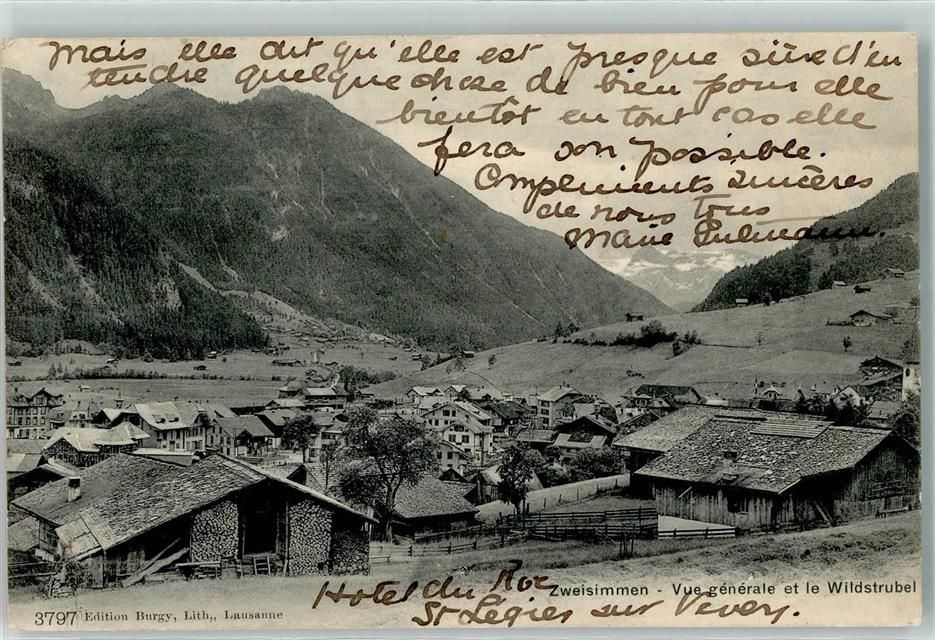 mais elle dit qu'elle est presque sûre d'en
tendre quelque chose de bien pour elle
bientôt en tout cas elle
fera son possible.
Compliments sincères
de nous tous
Marie
Hotel du Roc
St Légier sur Vevey.
Zweisimmen - Vue générale et le Wildstrubel
3797 Edition Burgy, Lith,, Lausanne